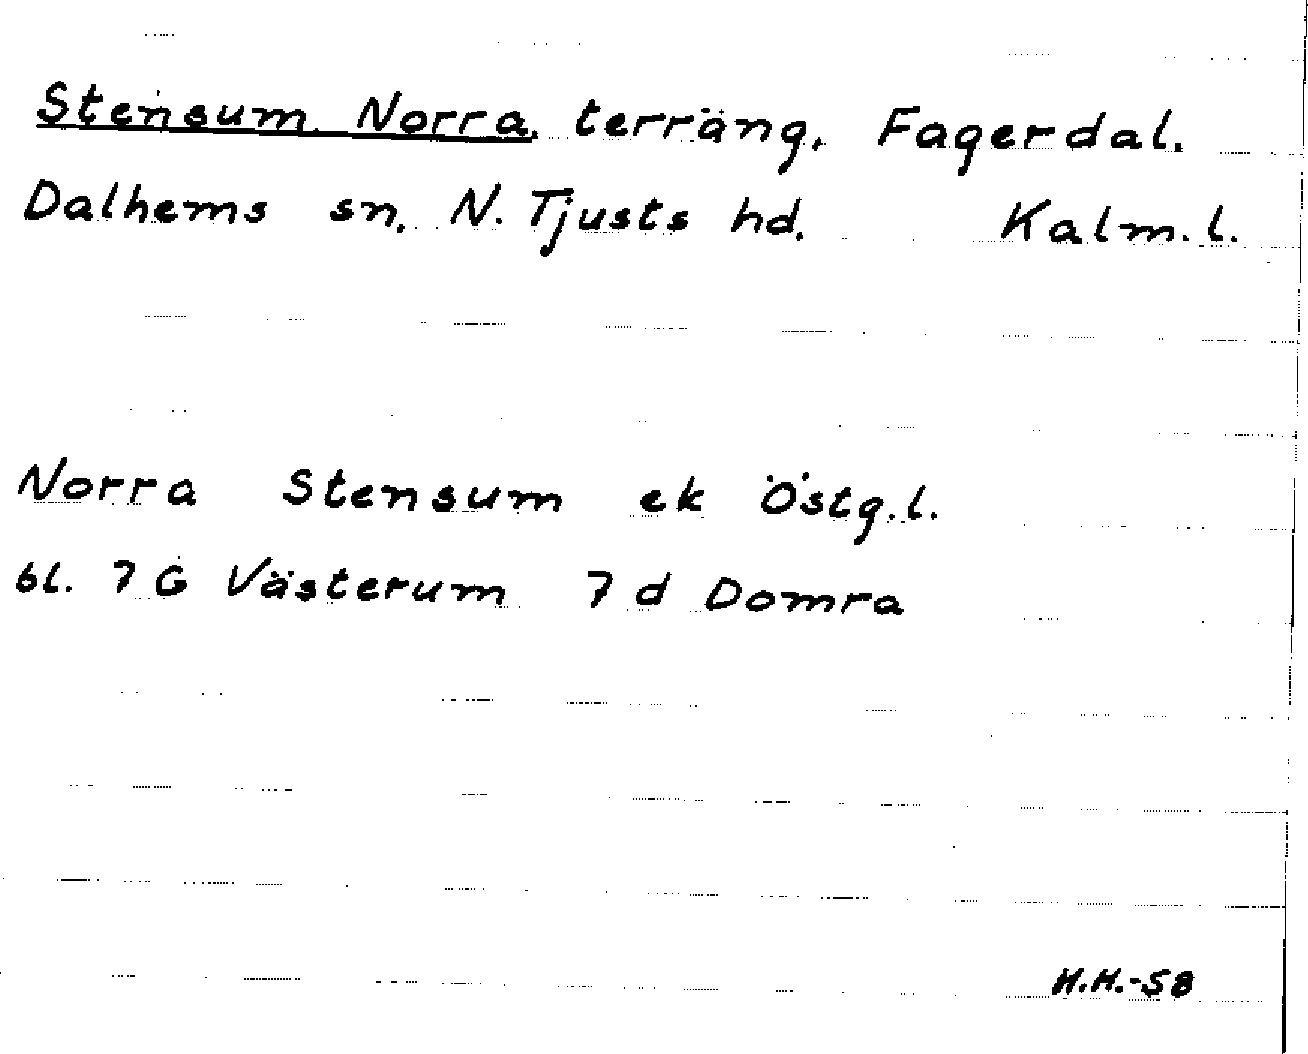 Stensum Norra, terräng, Fagerdal.
Dalhems sn. N. Tjusts hd. Kalm. l.
Norra Stensum ek Östg. l.
bl. 7 G Västerum 7 d Domra
H.H.-58